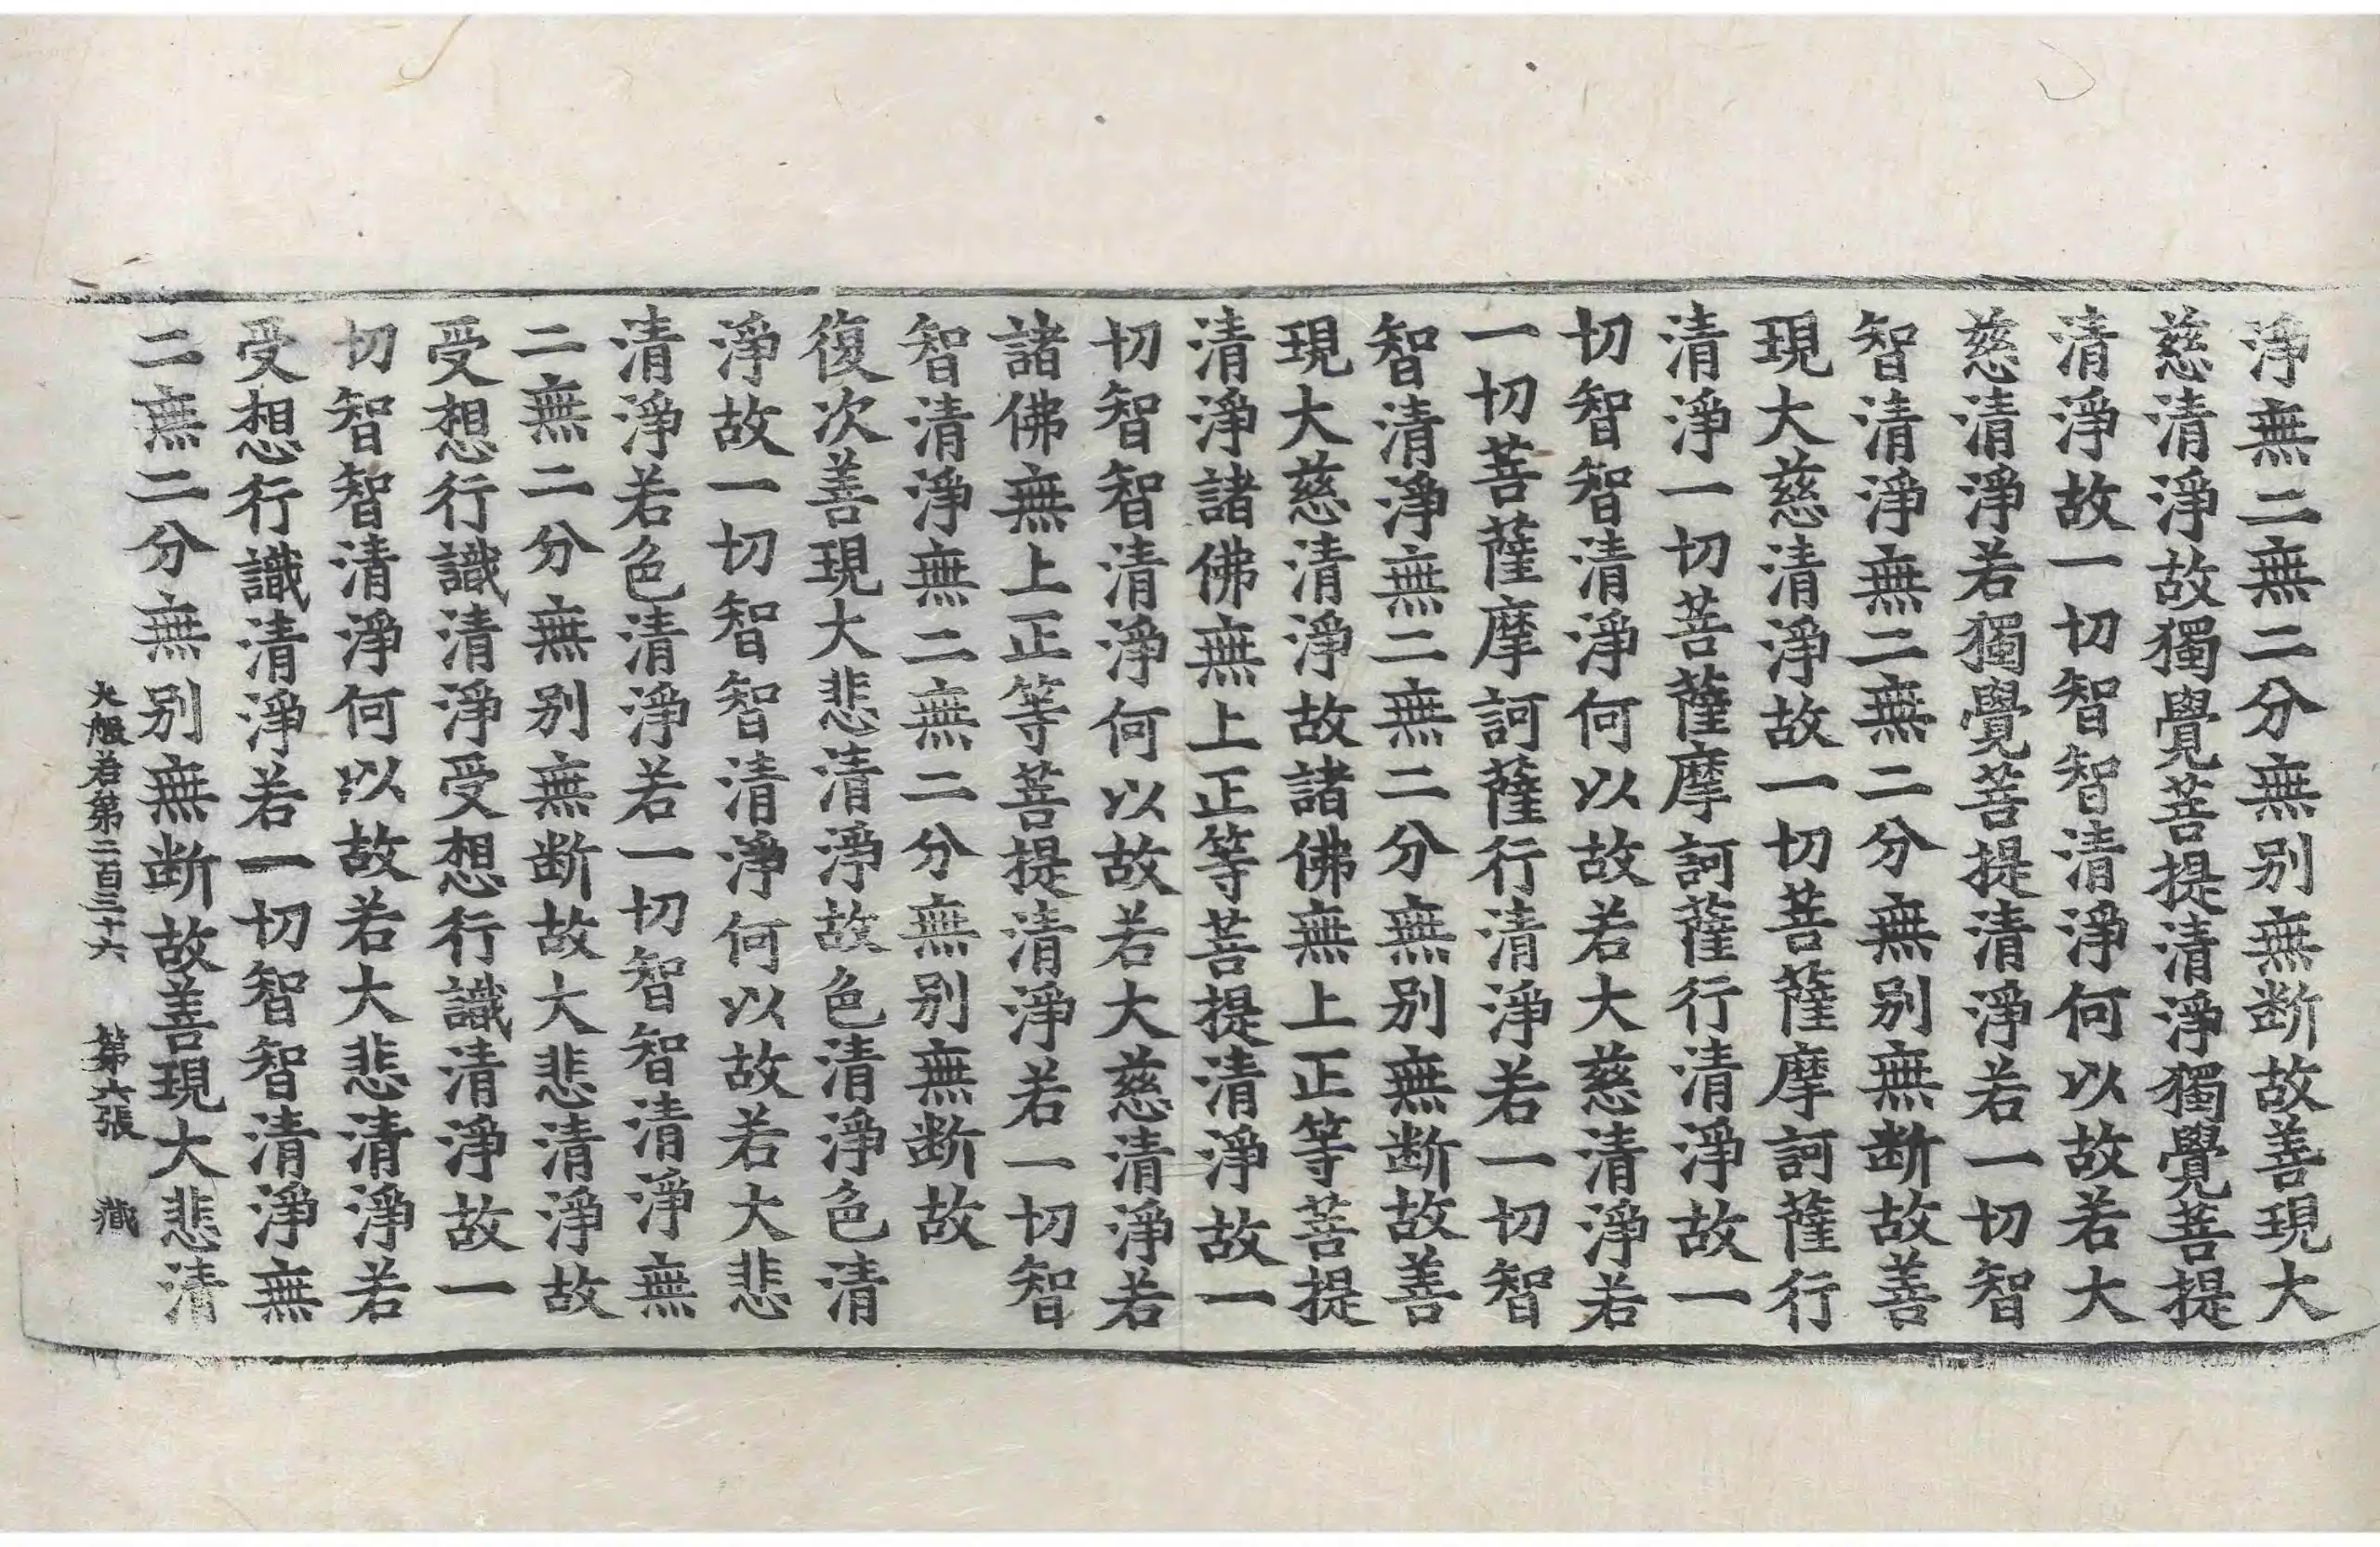 淨無二無二分無別無断故善現大
慈清淨故獨覺菩提清淨獨覺菩提
清淨故一切智智清淨何以故若大
慈清淨若獨覺菩提清淨若一切智
智清淨無二無二分無別無断故善
現大慈清淨故一切菩薩摩訶薩行
清淨一切菩薩摩訶薩行清淨故一
切智智清淨何以故若大慈清淨若
一切菩薩摩訶薩行清淨若一切智
智清淨無二無二分無別無断故善
現大慈清淨故諸佛無上正等菩提
清淨諸佛無上正等菩提清淨故一
切智智清淨何以故若大慈清淨若
諸佛無上正等菩提清淨若一切智
智清淨無二無二分無別無断故
復次善現大悲清淨故色清淨色清
淨故一切智智清淨何以故若大悲
清淨若色清淨若一切智智清淨無
二無二分無別無断故大悲清淨故
受想行識清淨受想行識清淨故一
切智智清淨何以故若大悲清淨若
受想行識清淨若一切智智清淨無
二無二分無別無断故善現大悲清
大般若第二百三十六 第六張 藏